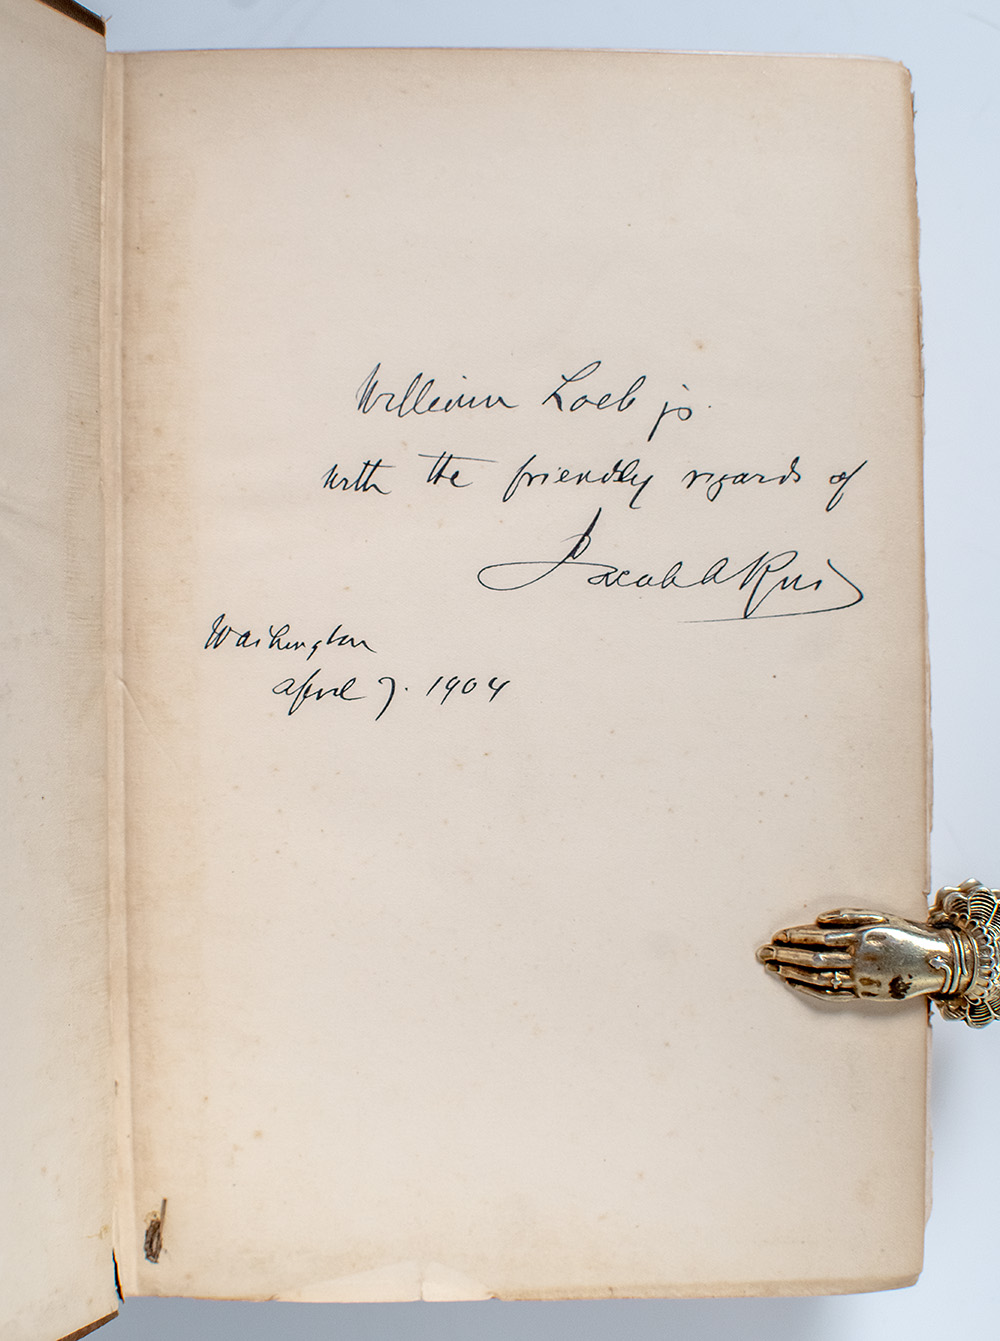 William Loeb jr.
with the friendly regards of
Jacob A Riis
Washington
April 7. 1904